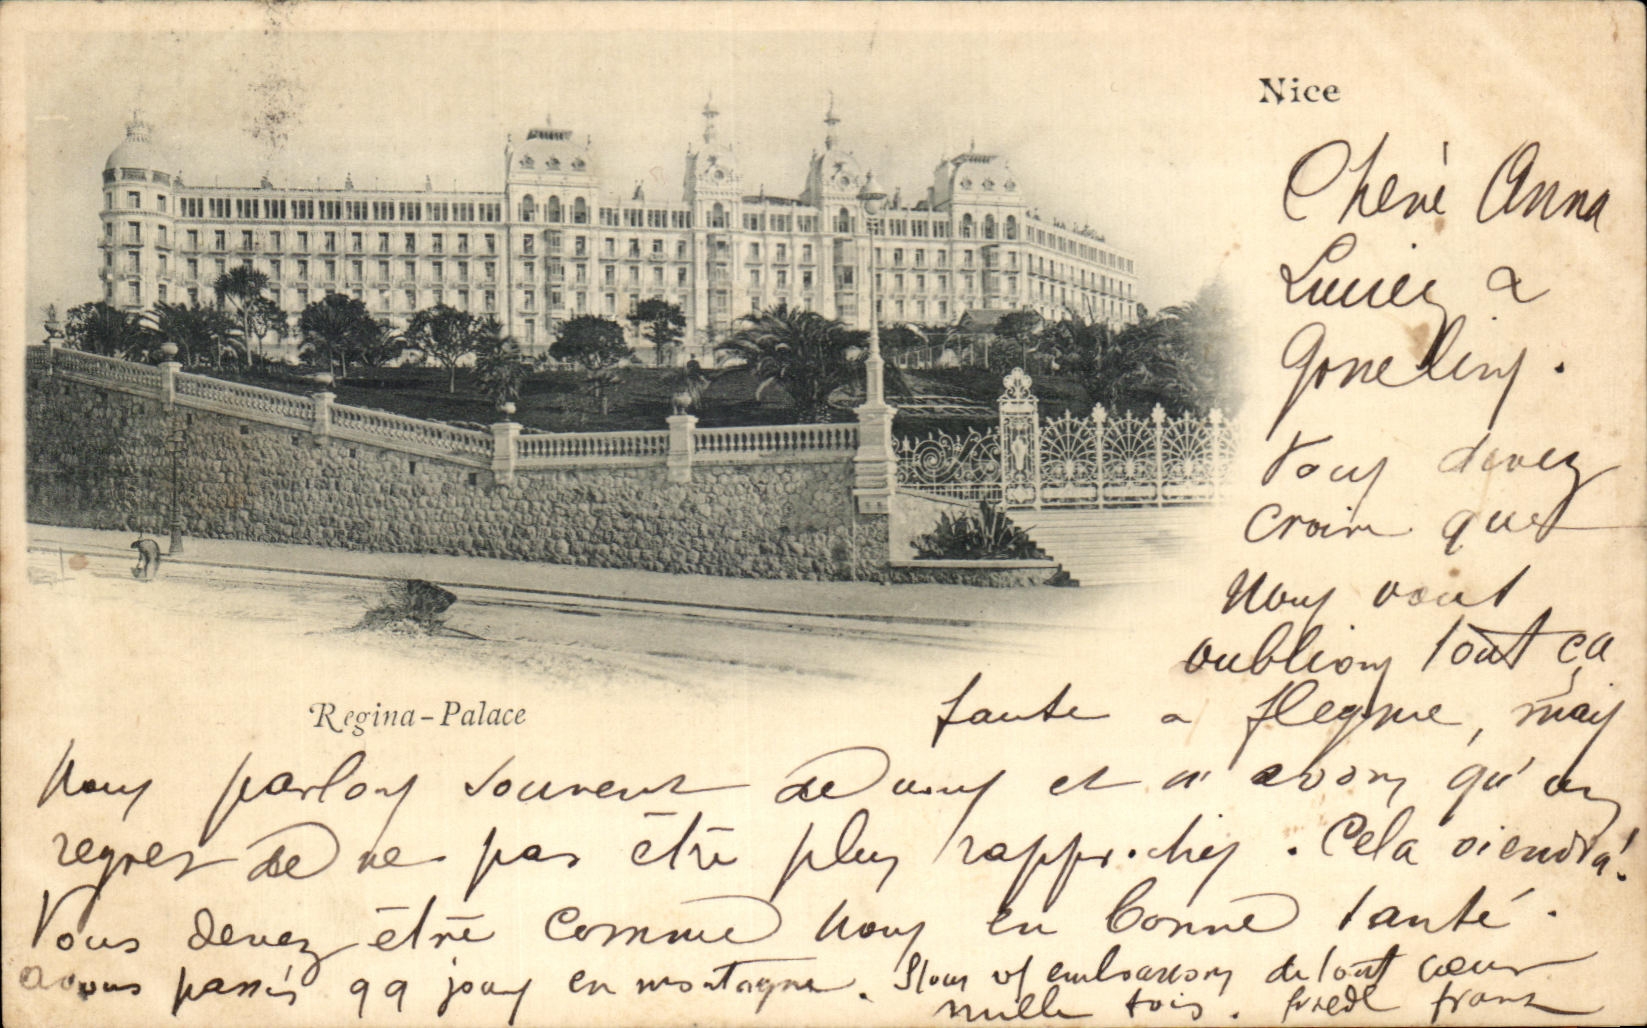 Nice
Regina-Palace
Chère Anna
Lucien &
Vous devez
croire que
nous vous
oublions tout ça
faute a flegme, mais
Nous parlons souvent de vous et n'avons qu'un
regret de ne pas être plus rapprochés. Cela viendra!
Vous devez être comme nous en bonne santé.
avons passés qq jours en montagne. Nous vs embrassons de tout cœur
mille fois. Friedl Franz